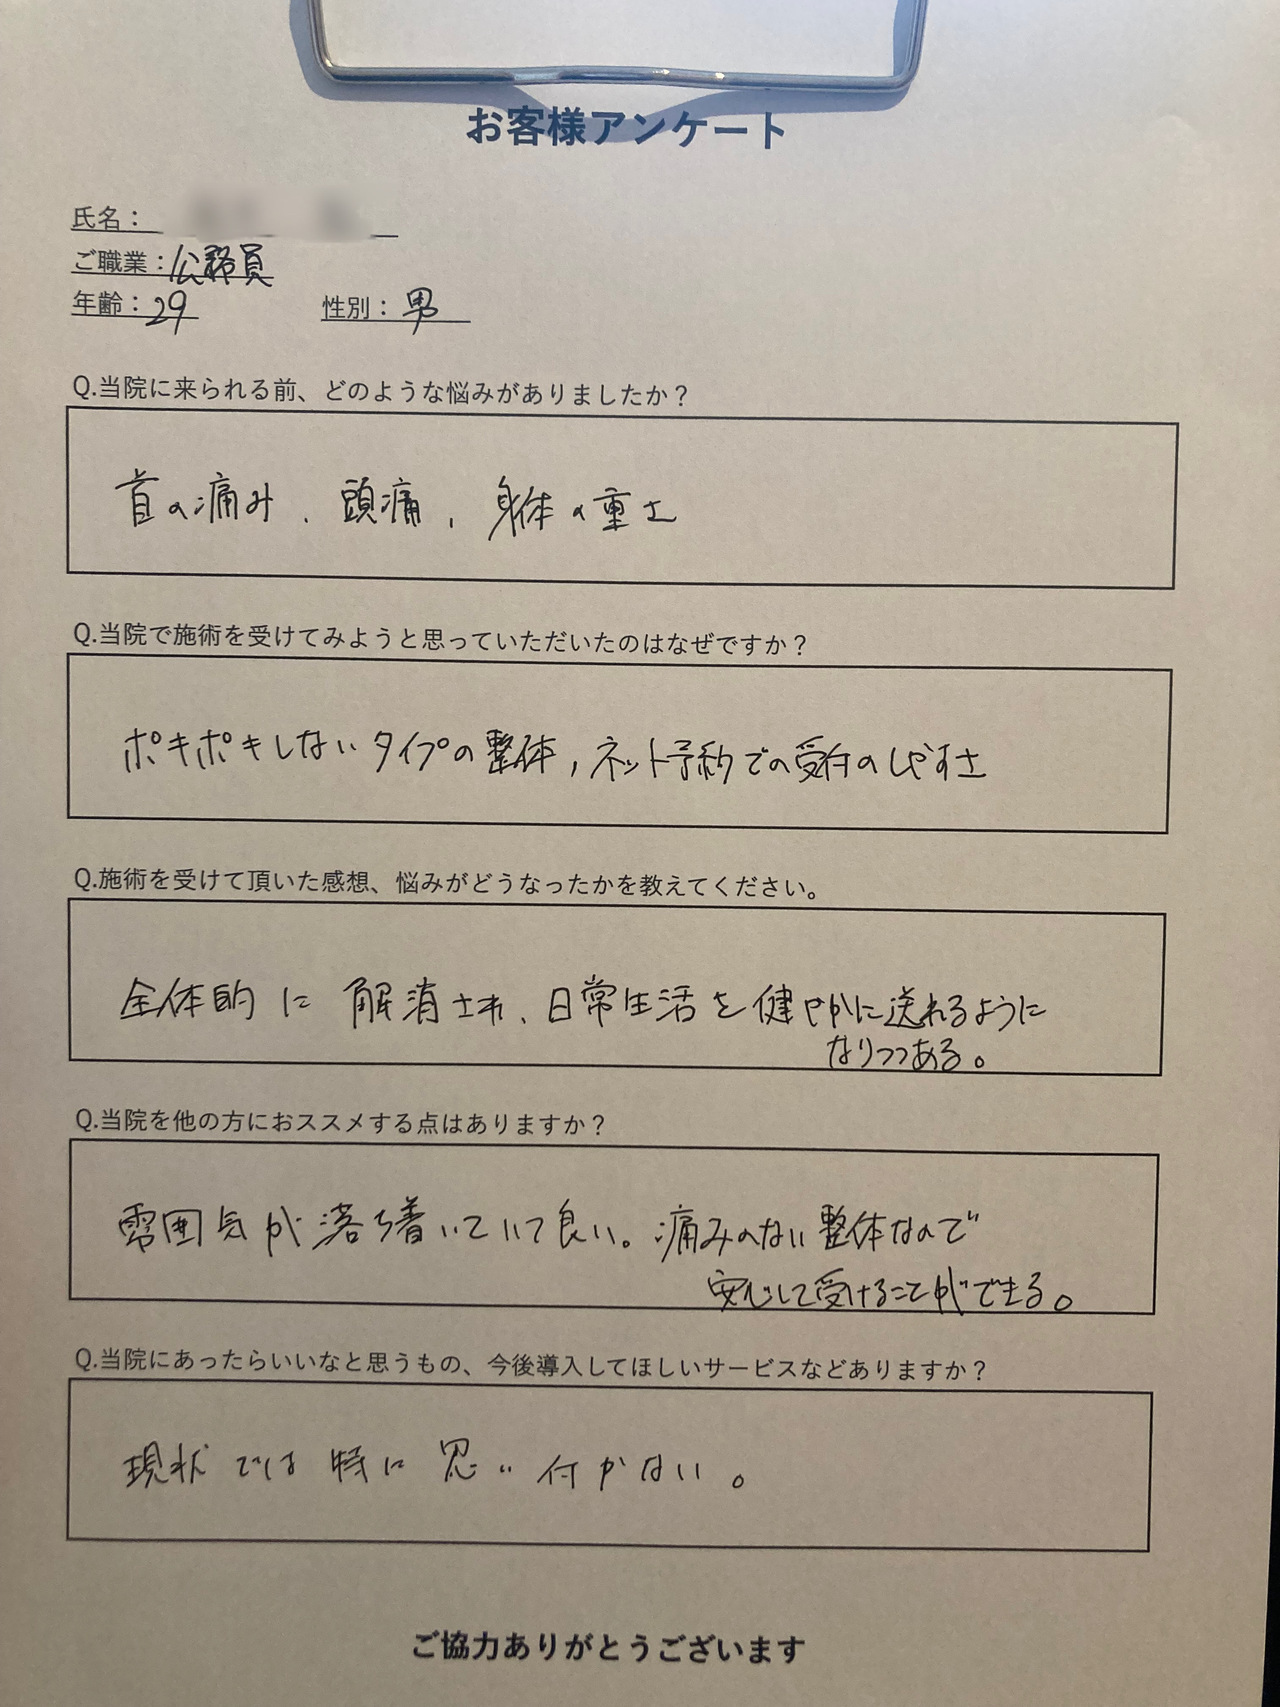 お客様アンケート
氏名：
ご職業：公務員
年齢：29 性別：男
Q.当院に来られる前、どのような悩みがありましたか？
首の痛み、頭痛、身体の重さ
Q.当院で施術を受けてみようと思っていただいたのはなぜですか？
ポキポキしないタイプの整体、ネット予約での受付のしやすさ
Q.施術を受けて頂いた感想、悩みがどうなったかを教えてください。
全体的に解消され、日常生活を健やかに送れるように
なりつつある。
Q.当院を他の方におススメする点はありますか？
雰囲気が落ち着いていて良い。痛みのない整体なので
安心して受けることができる。
Q.当院にあったらいいなと思うもの、今後導入してほしいサービスなどありますか？
現状では特に思い付かない。
ご協力ありがとうございます